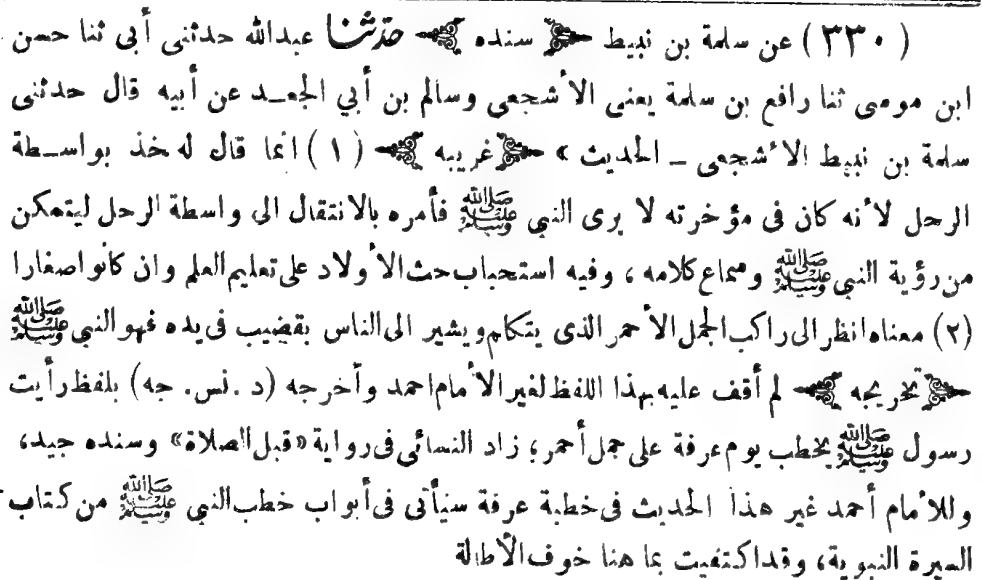 ( ٣٣٠ ) عن سلمة بن نبيط ﴿ سنده ﴾ حدّثنا عبدالله حدثنى أبى ثنا حسن
ابن موسى ثنا رافع بن سلمة يعنى الأشجعى وسالم بن أبي الجعـد عن أبيه قال حدثنى
سلمة بن نبيط الأشجعى ــ الحديث » ﴿ غريبه ﴾ ( ١ ) انما قال له خذ بواسـطة
الرحل لأنه كان فى مؤخرته لا يرى النبى ﷺ فأمره بالانتقال الى واسطة الرحل ليتمكن
من رؤية النبى ﷺ وسماع كلامه ، وفيه استحباب حث الأولاد على تعليم العلم وان كانوا صغارا
(٢) معناه انظر الى راكب الجمل الأحمر الذى يتكلم ويشير الى الناس بقضيب فى يده فهو النبى ﷺ
﴿ تخريجه ﴾ لم أقف عليه بهذا اللفظ لغير الأمام احمد وأخرجه (د . نس . جه) بلفظ رأيت
رسول ﷺ يخطب يوم عرفة على جمل أحمر؛ زاد النسائى فى رواية «قبل الصلاة» وسنده جيد،
وللأمام أحمد غير هذا الحديث فى خطبة عرفة سيأتى فى أبواب خطب النبى ﷺ من كتاب
السيرة النبوية، وقد اكتفيت بما هنا خوف الأطالة